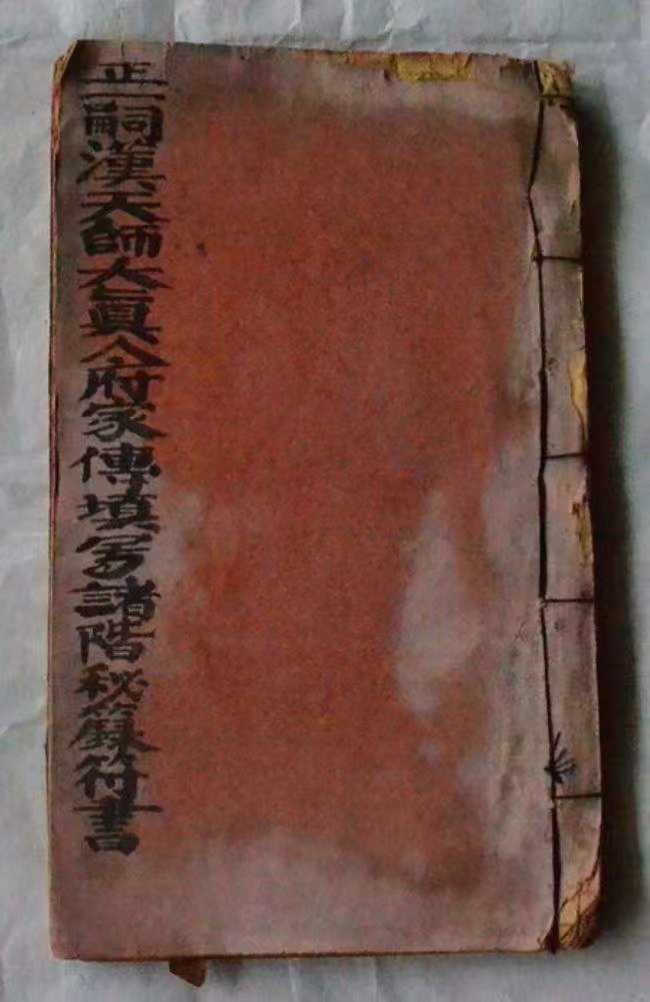 正一嗣漢天師大真人府家傳填寫諸階秘籙符書